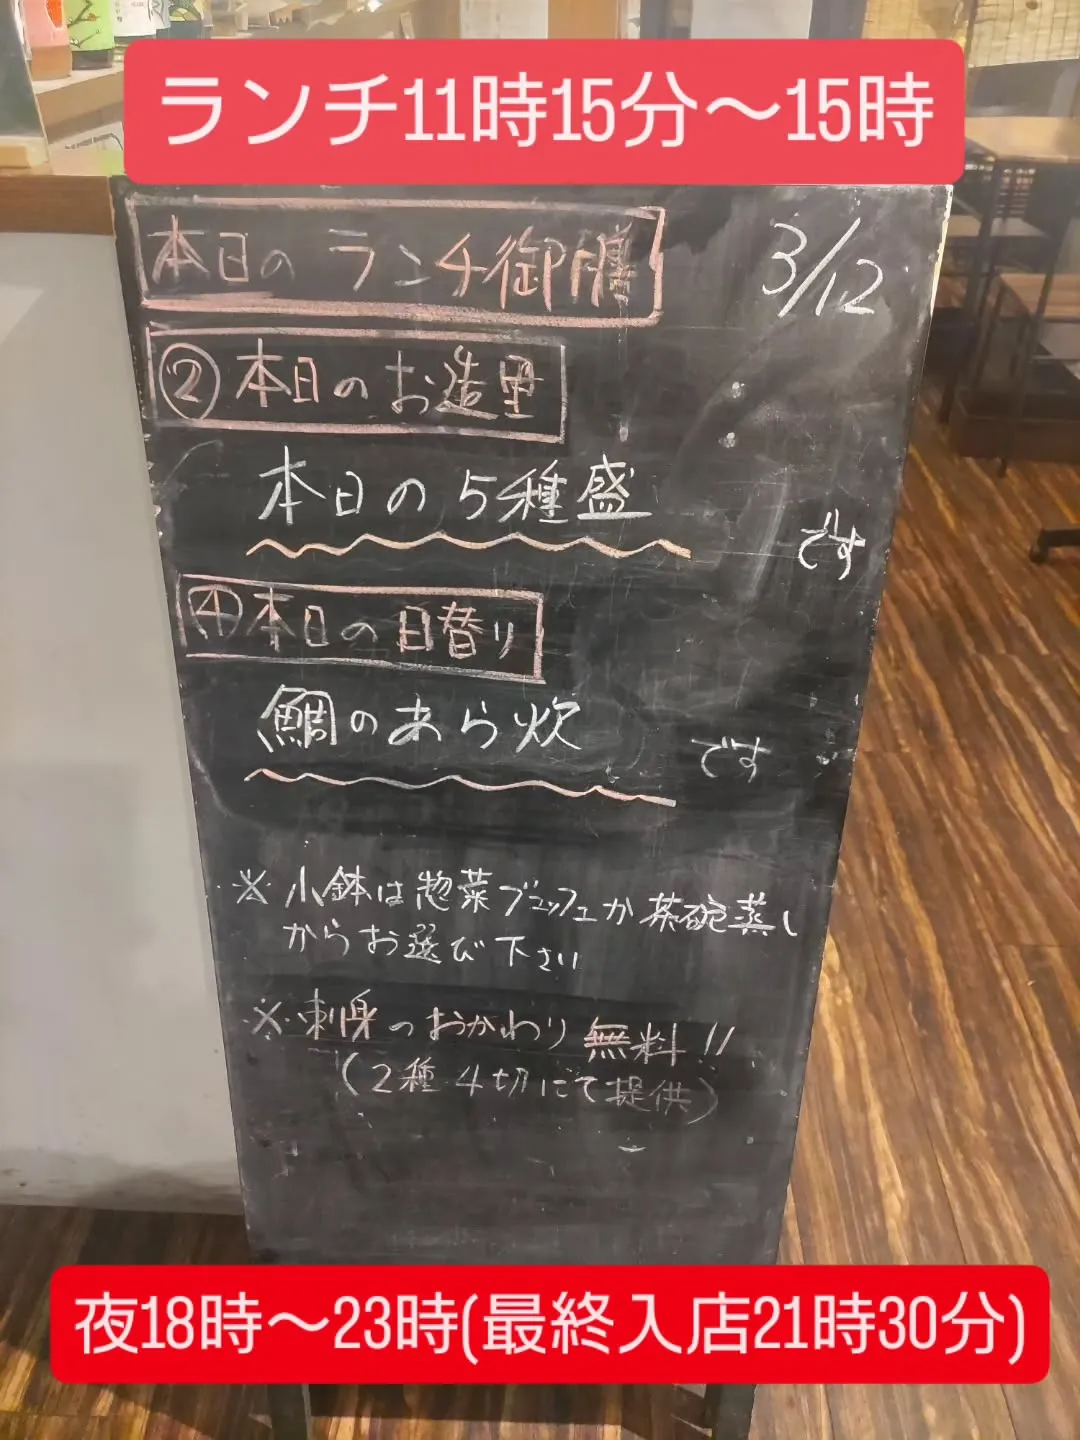 ランチ11時15分〜15時
本日のランチ御膳
3/12
②本日のお造里
本日の5種盛
です
④本日の日替り
鯛のあら炊
です
※小鉢は惣菜ブュッフェか茶碗蒸し
からお選び下さい
※刺身のおかわり無料!!
(2種4切にて提供)
夜18時〜23時(最終入店21時30分)